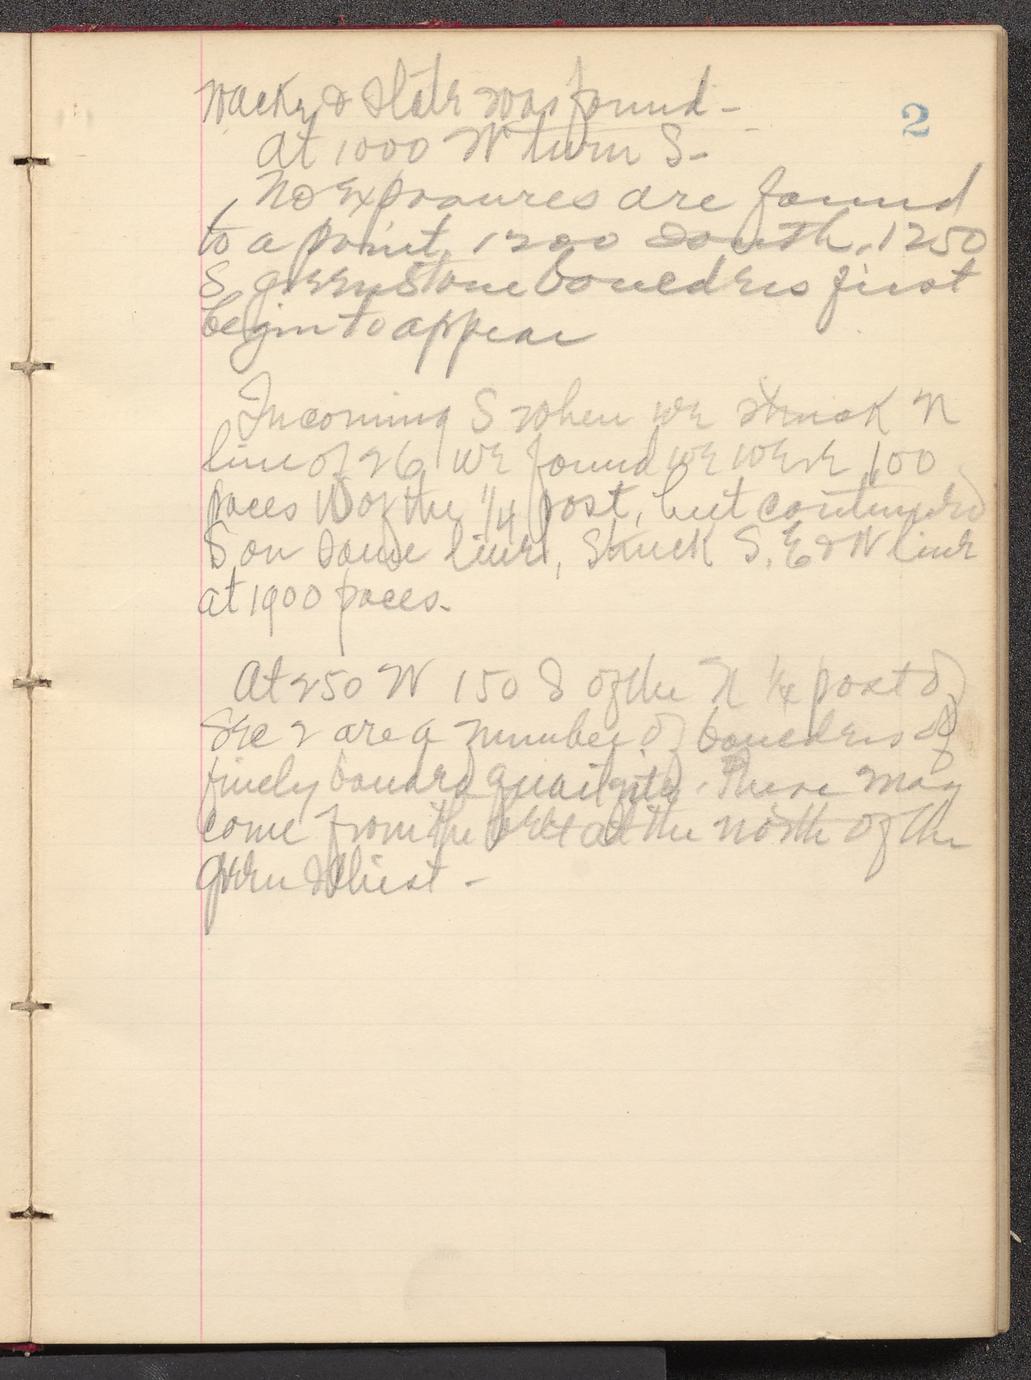 2
wacky & slate was found -
at 1000 W turn S -
No exposures are found
to a point, 1200 South, 1250
S greenstone boulders first
begin to appear
In coming S when we struck N
line of 26 we found we were 100
paces W of the 1/4 post, but continued
S on same line, struck S. E & W line
at 1900 paces.
At 250 W 150 S of the N 1/4 post of
Sec 2 are a number of boulders of
finely banded quartzite. These may
come from the belt at the north of the
green schist -